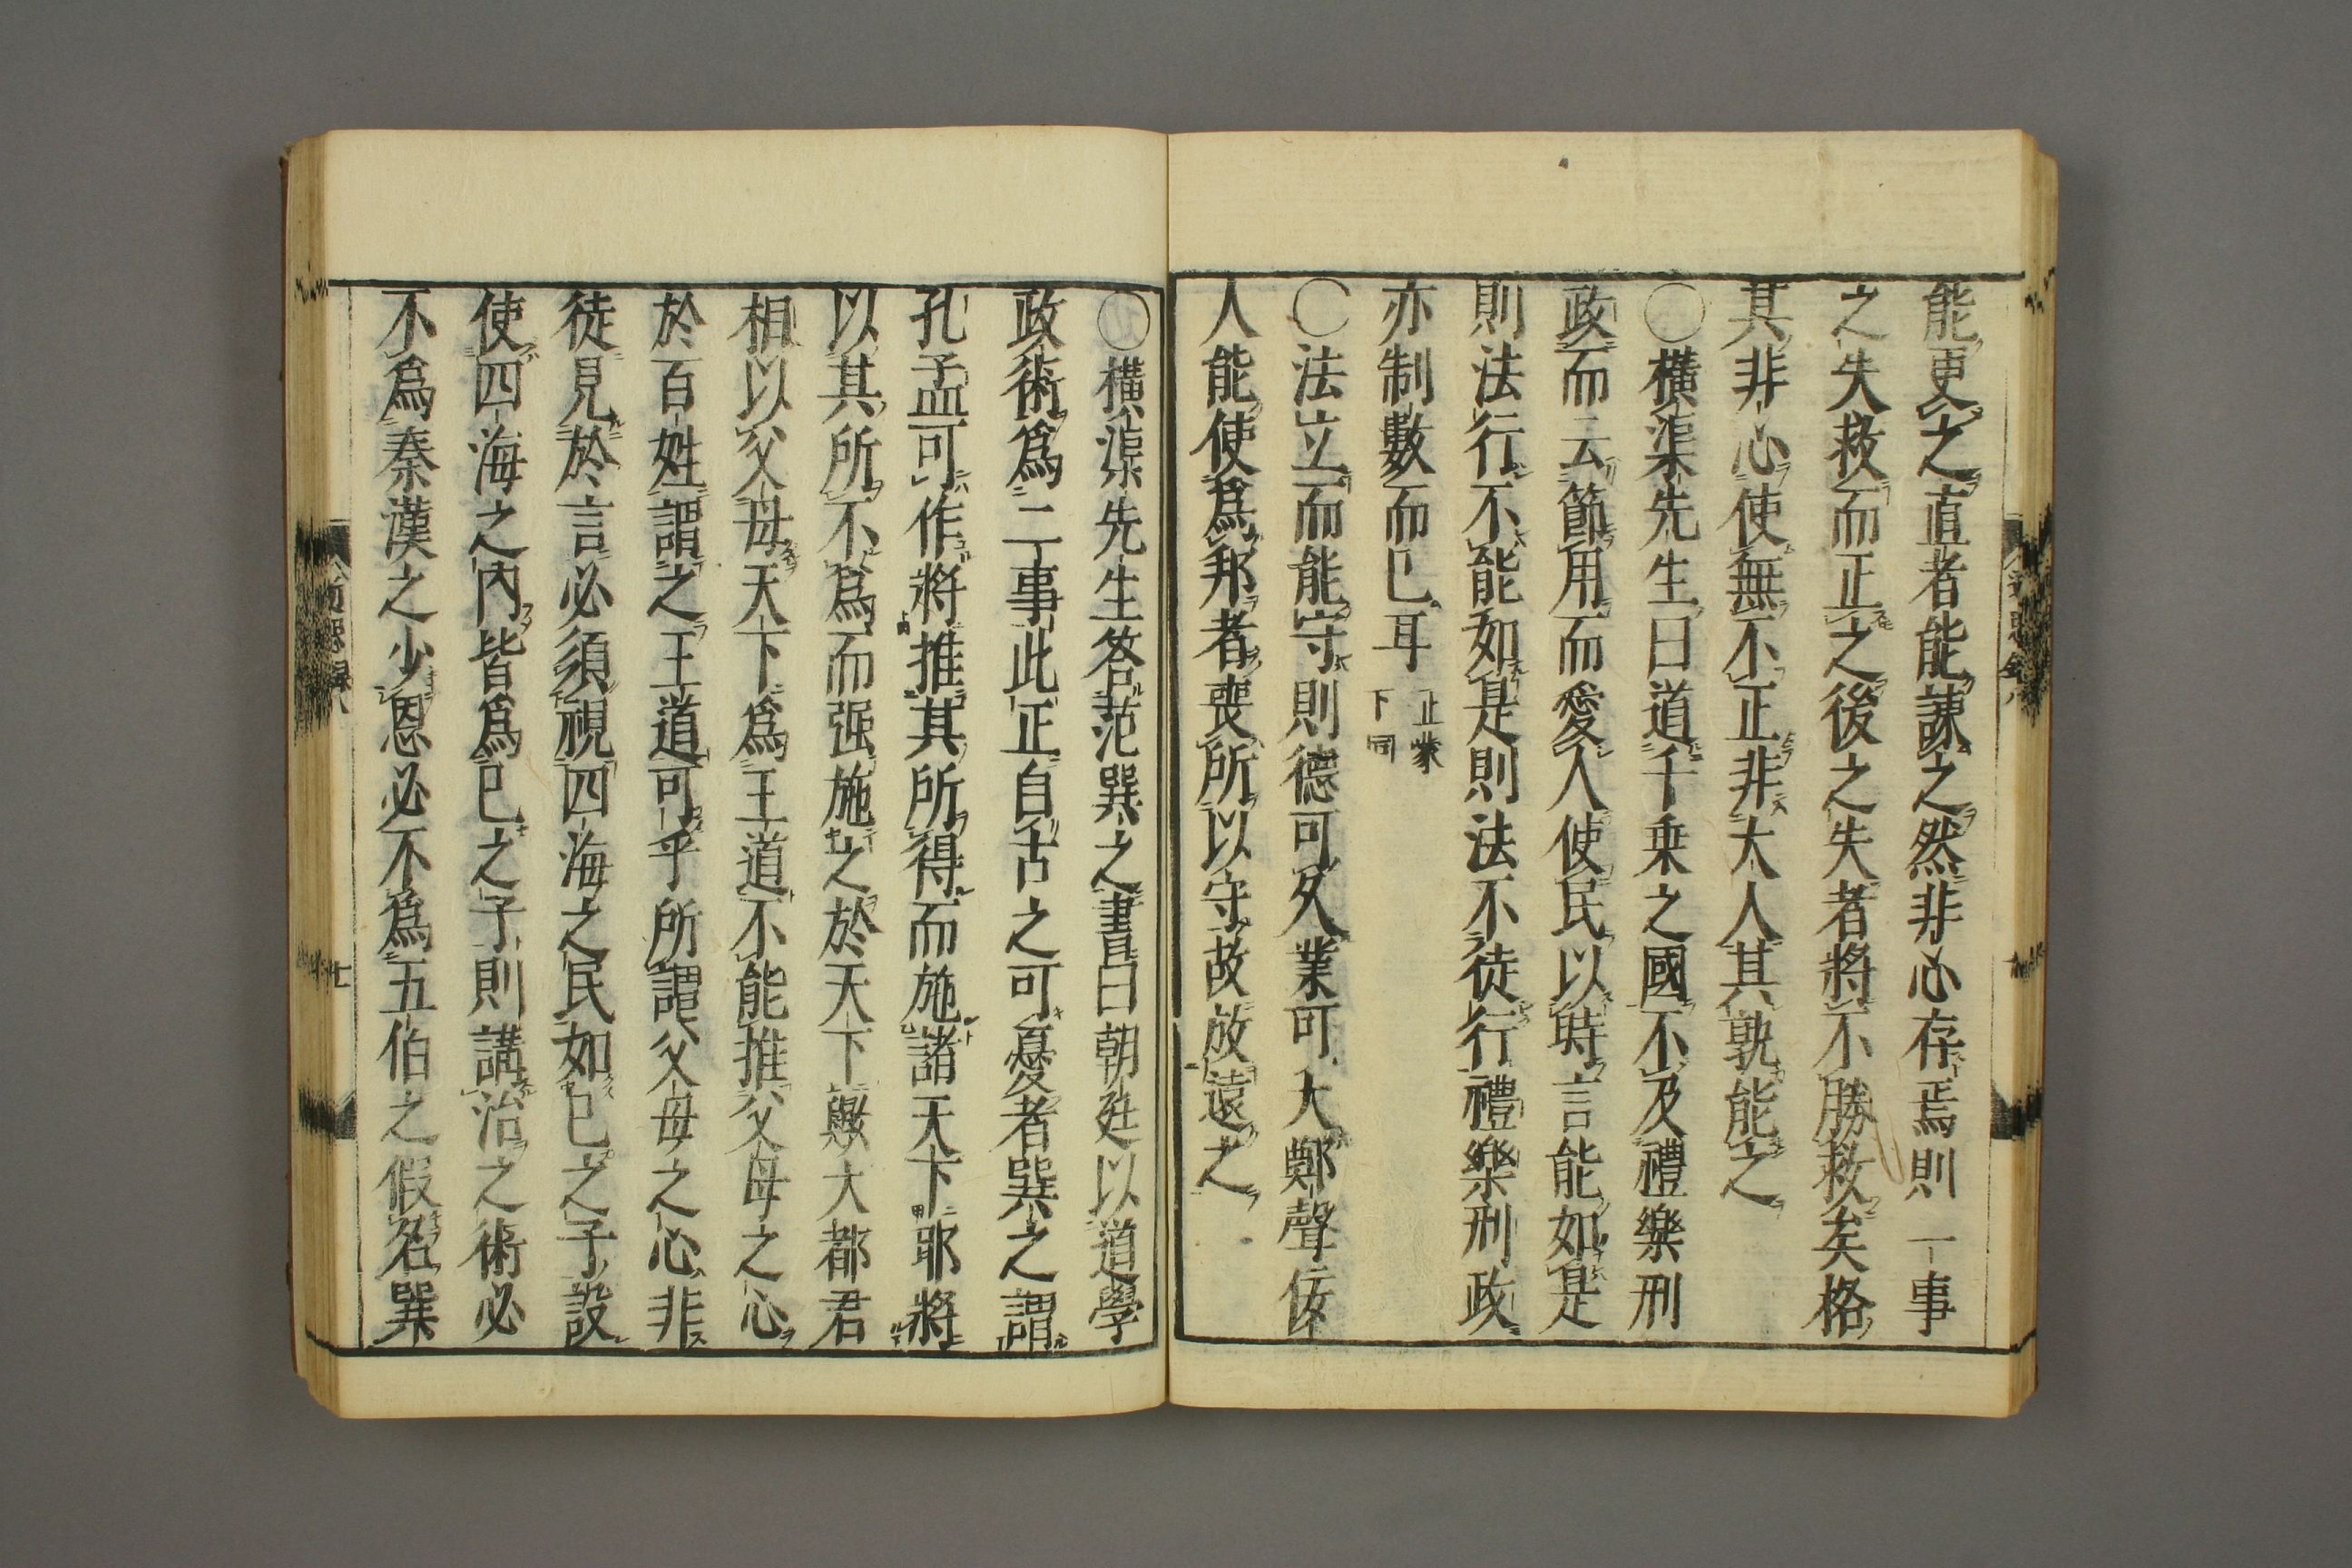 能更之直者能諫之然非心存焉則一事
之失救而正之後之失者將不勝救矣格
其非心使無不正非大人其孰能之
〇橫渠先生曰道千乗之國不及禮樂刑
政而云節用而愛人使民以時言能如是
則法行不能如是則法不徒行禮樂刑政
亦制數而已耳
正蒙
下同
〇法立而能守則德可久業可大鄭聲佞
人能使爲邦者喪所以守故放遠之
〇橫渠先生答范巽之書曰朝廷以道學
政術爲二事此正自古之可憂者巽之謂
孔孟可作將推其所得而施諸天下耶將
以其所不爲而强施之於天下歟大都君
相以父母天下爲王道不能推父母之心
於百姓謂之王道可乎所謂父母之心非
徒見於言必須視四海之民如已之子設
使四海之內皆爲已之子則講治之術必
不爲秦漢之少恩必不爲五伯之假名巽